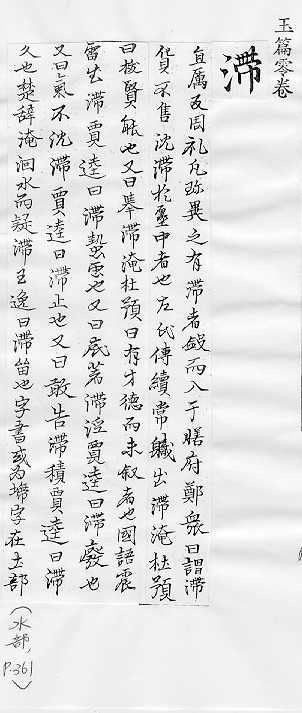 玉篇零卷
滯
直厲反周礼凡珍異之有滯者斂而入于膳府鄭眾曰謂滯
貨不售沈滯於廛中者也左氏傳續常軄出滯淹杜預
曰拔賢能也又曰舉滯淹杜預曰有才德而未叙者也國語震
雷出滯賈逵曰滯蟄虫也又曰底著滯淫賈逵曰滯廢也
又曰氣不沈滯賈逵曰滯止也又曰敢告滯積賈逵曰滯
久也楚辭淹洄水而疑滯王逸曰滯留也字書或為墆字在土部
(水部, P.361)